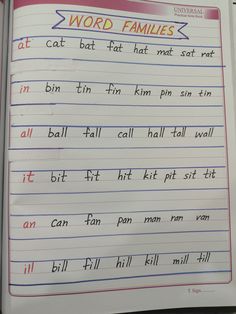 UNIVERSAL
WORD FAMILIES
at cat bat fat hat mat sat rat
in bin tin fin kim pin sin tin
all ball fall call hall tall wall
it bit fit hit kit pit sit tit
an can fan pan man ran van
ill bill fill hill kill mill till
T. Sign.